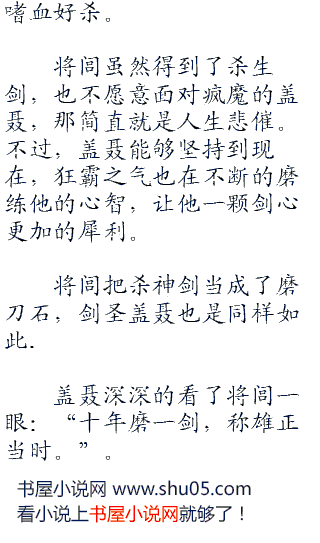 嗜血好杀。
将闾虽然得到了杀生
剑，也不愿意面对疯魔的盖
聂，那简直就是人生悲催。
不过，盖聂能够坚持到现
在，狂霸之气也在不断的磨
练他的心智，让他一颗剑心
更加的犀利。
将闾把杀神剑当成了磨
刀石，剑圣盖聂也是同样如
此.
盖聂深深的看了将闾一
眼：“十年磨一剑，称雄正
当时。”。
书屋小说网 www.shu05.com
看小说上书屋小说网就够了！